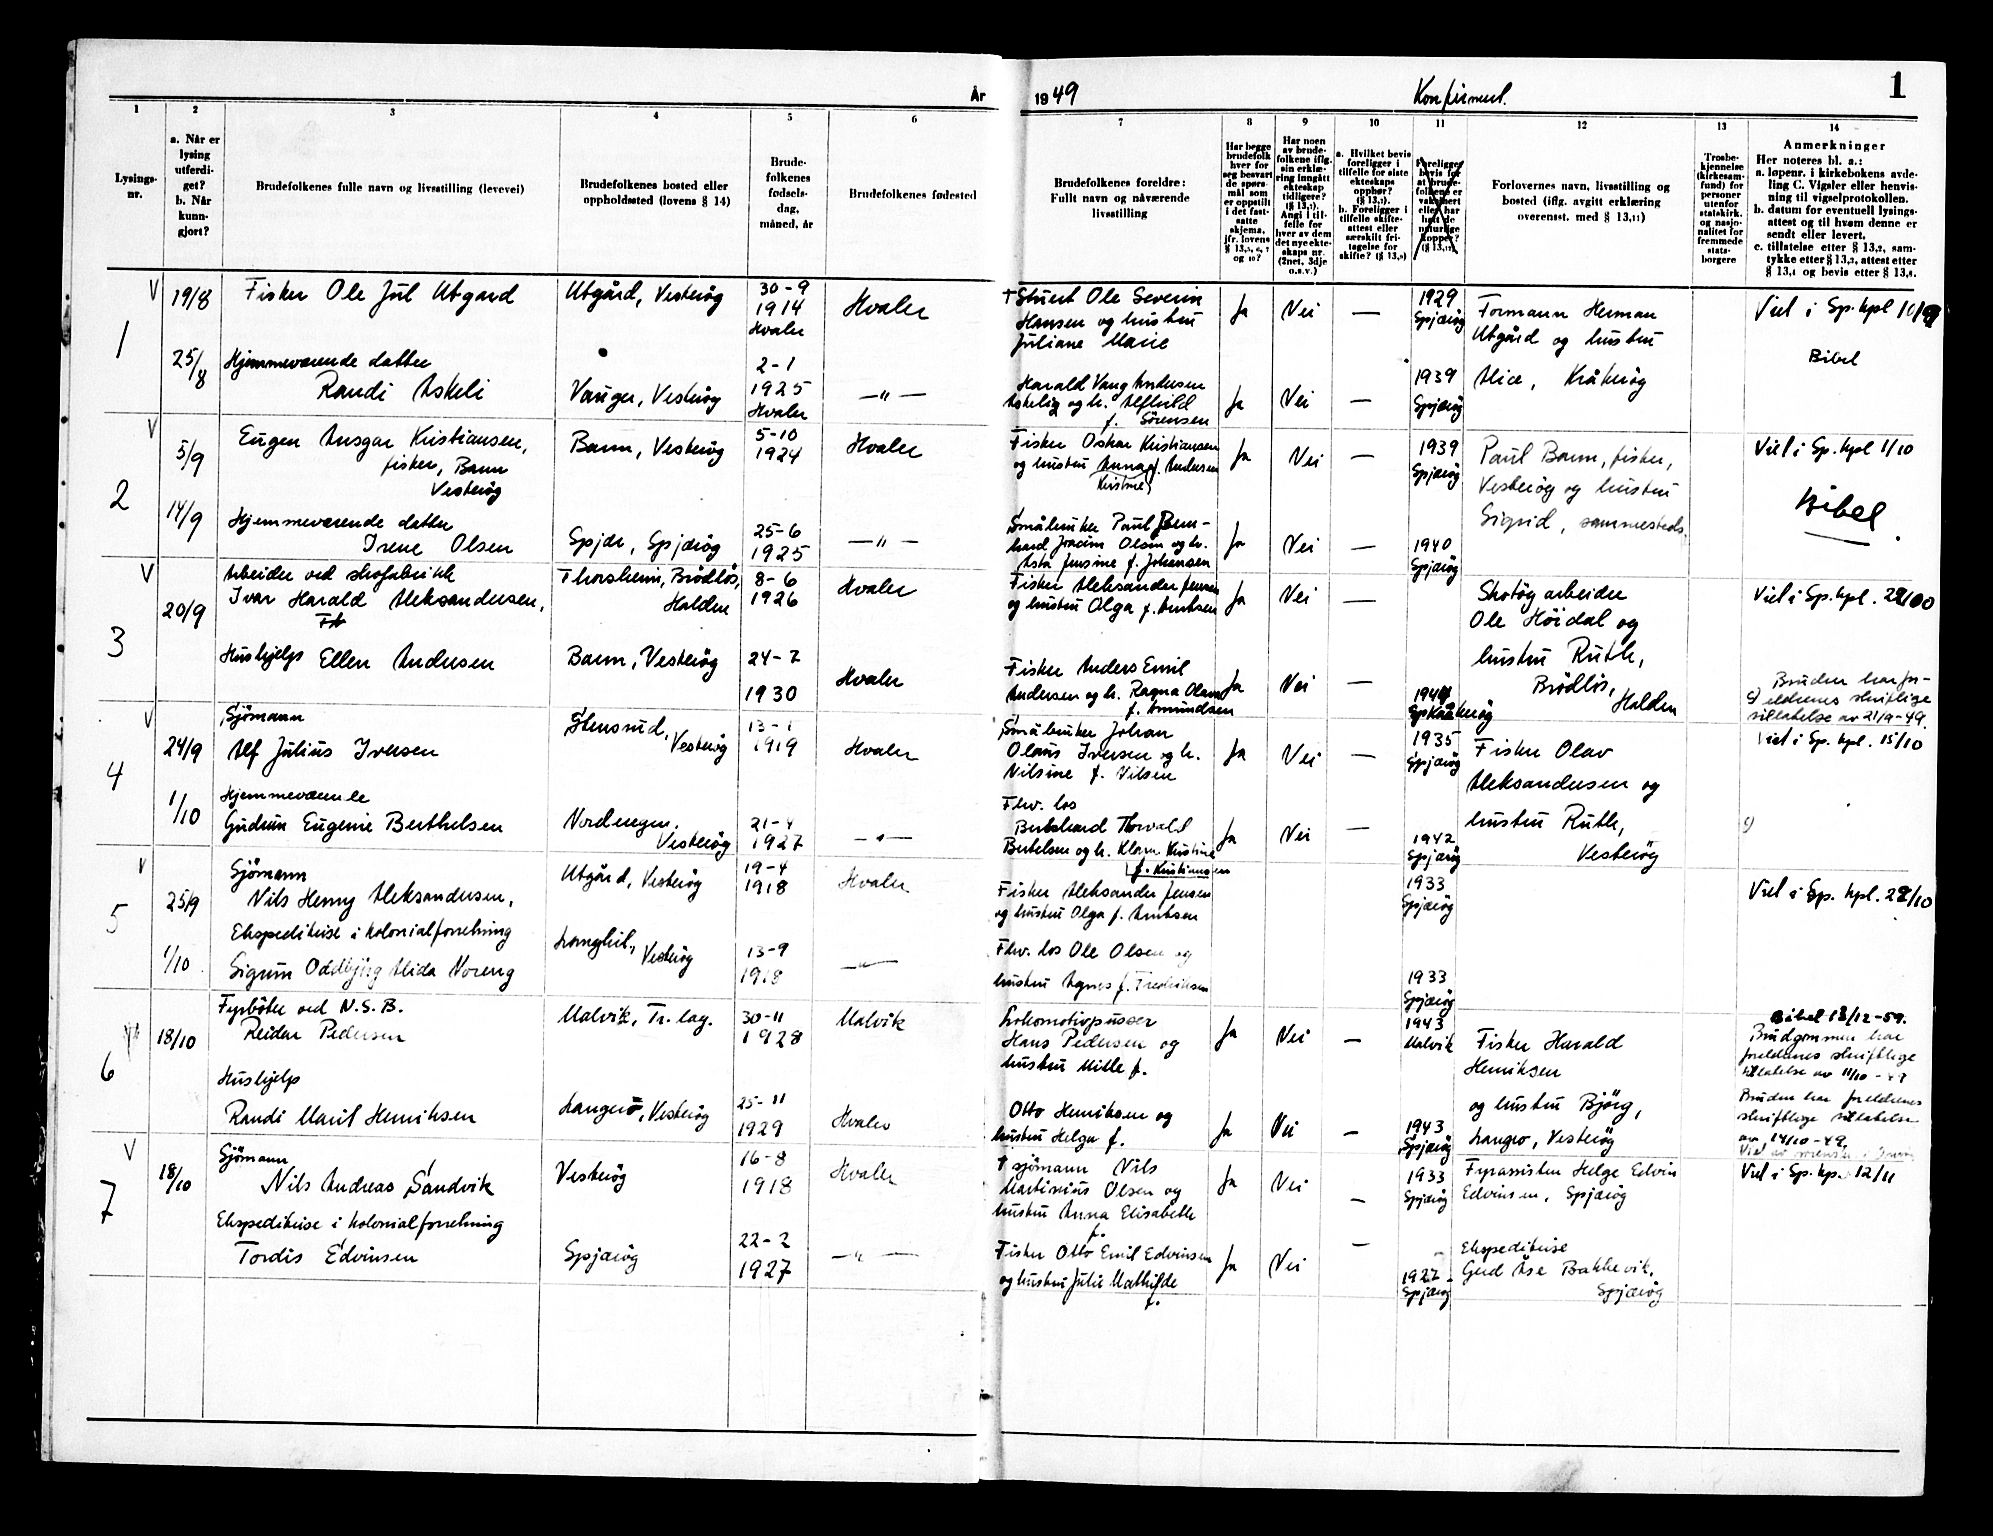 År
1949
Konfirmert.
1
1
2
3
4
5
6
7
8
9
10
11
12
13
14
Lysings-
nr.
a. Når er
lysing
utferdi-
get?
b. Når
kunn-
gjort?
Brudefolkenes fulle navn og livsstilling (levevei)
Brudefolkenes bosted eller
oppholdssted (lovens § 14)
Brude-
folkenes
fødsels-
dag,
måned, år
Brudefolkenes fødested
Brudefolkenes foreldre:
Fullt navn og nåværende
livsstilling
Har begge
brudefolk
hver for
seg besvart
de spørs-
mål som
er oppstilt
i det fast-
satte
skjema,
jfr. lovens
og 10?
Har noen
av brude-
folkene iflg.
sin erklæ-
ring inngått
ekteskap
tidligere?
Angi i til-
felle for
hver av dem
det nye ekte-
skaps nr.
(2net, 3dje
o.s.v.)
a. Hvilket bevis
foreligger i
tilfelle for siste
ekteskaps
opphør?
b. Foreligger i
tilfelle skifte-
attest eller
særskilt fri-
tagelse for
Foreligger
bevis for
at brude-
folkene er
vaksinert
eller har
hatt de
naturlige
kopper?
Forlovernes navn, livsstilling og
bosted (iflg. avgitt erklæring
overensst. med § 13,11)
Trosbe-
kjennelse
(kirkesam-
fund) for
personer
utenfor
statskirk.
og nasjo-
nalitet for
fremmede
stats-
borgere
Anmerkninger
Her noteres bl. a.:
a. løpenr. i kirkebokens avde-
ling C. Vigsler eller henvis-
ning til vigselprotokollen.
b. datum for eventuell lysings-
attest og til hvem denne er
sendt eller levert.
c. tillatelse etter § 13,2, sam-
tykke etter § 13,3, attest etter
§ 13,4 og bevis etter § 13,8.
1
V
19/8
Fisker Ole Jul Utgard
Utgård, Vesterøy
30-9
1914
Hvaler
Hvaler
† Stuert Ole Severin
Hansen og hustru
Juliane Marie
Ja
Nei
—
1929
Spjærøy
Formann Herman
Utgård og hustru
Alice, Kråkerøy
Viet i Sp. kpl
Bibel
25/8
Hjemmeværende datter
Randi Askeli
Vauger, Vesterøy
2-1
1925
Hvaler
—"—
Harald Vang Andersen
Askelig og h. Alfhild
f. Sørensen
Ja
Nei
—
1939
Spjærøy
2
V
5/9
Eugen Ansgar Kristiansen,
fisker, Bann
Vesterøy
Bann, Vesterøy
5-10
1924
Hvaler
Fisker Oskar Kristiansen
og hustru Anna f. Andersen
Kristine
Ja
Nei
—
1939
Spjærøy
Paul Bann, fisker,
Vesterøy og hustru
Sigrid, sammesteds.
Viet i Sp. kpl 1/10
Bibel
14/9
Hjemmeværende datter
Irene Olsen
Spjær, Spjærøy
25-6
1925
—"—
Småbruker Paul Bern-
hard Joacim Olsen og h.
Asta Jensine f. Johansen
Ja
Nei
—
1940
Spjærøy
3
V
20/9
Arbeider ved skofabrikk
Ivar Harald Aleksandersen,
Thorsheim, Brødløs,
Halden
8-6
1926
Hvaler
Fisker Aleksander Jensen
og hustru Olga f. Arntsen
Ja
Nei
—
Skotøyarbeider
Ole Höidal og
hustru Ruth,
Brødløs,
Halden
Viet i Sp. kpl.
Hushjelp Ellen Andersen
Bann, Vesterøy
24-7
1930
Hvaler
Fisker Anders Emil
Andersen og h. Ragna Olava
f. Amundsen
Ja
Nei
—
Kråkerøy
Bruden har for-
eldrenes skriftlige
tillatelse av 21/9-49.
4
V
24/9
Sjömann
Alf Julius Iversen
Stensrud,
Vesterøy
13-1
1919
Hvaler
Småbruker Johan
Olaus Iversen og h.
Nilsine f. Nilsen
Ja
Nei
—
1935
Spjærøy
Fisker Olav
Aleksandersen og
hustru Ruth,
Vesterøy
Viet i Sp. kpl. 15/10
1/10
Hjemmeværende
Gudrun Eugenie Berthelsen
Nordengen,
Vesterøy
21-4
1927
—"—
Fhv. los
Bernhard Thorvald
Bertelsen og h. Klara Kristine
f. Kristiansen
Ja
Nei
—
1942
Spjærøy
5
V
25/9
Sjömann
Nils Henry Aleksandersen,
Utgård, Vesterøy
19-4
1918
Hvaler
Fisker Aleksander Jensen
og hustru Olga f. Arntsen
1933
Spjærøy
Viet i Sp. kpl. 22/10
1/10
Ekspeditrise i kolonialforretning
Sigrun Oddbjørg Alida Noreng
Vesterøy
13-9
1918
—"—
Fhv. los Ole Olsen og
hustru Agnes f. Fredriksen
1933
Spjærøy
6
18/10
Fyrbøter ved N.S.B.
Reidar Pedersen
Malvik, Tr. lag.
30-11
1928
Malvik
Lokomotivpusser
Hans Pedersen og
hustru Mille f.
Ja
Nei
—
1943
Malvik
Fisker Harald
Henriksen
og hustru Bjørg,
Langerø, Vesterøy
Bibel 18/12-59.
Brudgommen har
foreldrenes skriftlige
tillatelse av 11/10-49
Hushjelp
Randi Marit Henriksen
Langerø, Vesterøy
25-11
1929
Hvaler
Otto Henriksen og
hustru Helga f.
Ja
Nei
—
1943
Spjærøy
Bruden har foreldrenes
skriftlige tillatelse
av 14/10-49.
7
V
18/10
Sjömann
Nils Andreas Sandvik
Vesterøy
16-8
1918
Hvaler
† sjömann Nils
Martinius Olsen og
hustru Anna Elisabeth
f.
Ja
Nei
—
1933
Spjærøy
Fyrassistent Helge Edvin
Edvinsen, Spjærøy
Viet i Sp. kp. 12/11
Ekspeditrise i kolonialforretning
Tordis Edvinsen
Spjærøy
22-2
1927
—"—
Fisker Otto Emil Edvinsen
og hustru Julie Mathilde
f.
Ja
Nei
—
1927
Spjærøy
Ekspeditrise
Gerd Åse Bakkevik,
Spjærøy